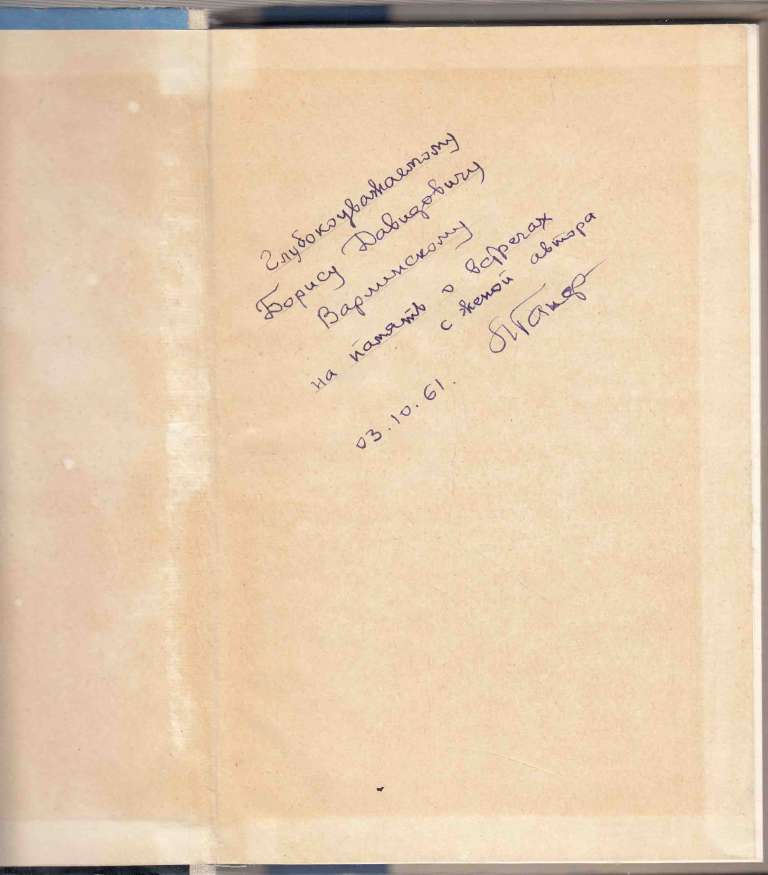 Глубокоуважаемому
Борису Давидовичу
Варлинскому
на память о встречах
с женой автора
03.10.61.